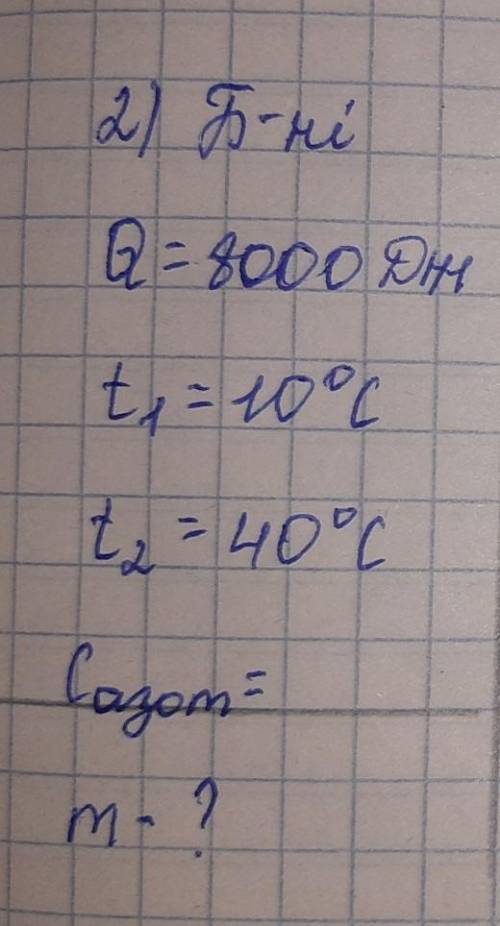 2) Б-ні
Q = 8000 Дж
t₁ = 10°C
t₂ = 40°C
Cазот =
m - ?